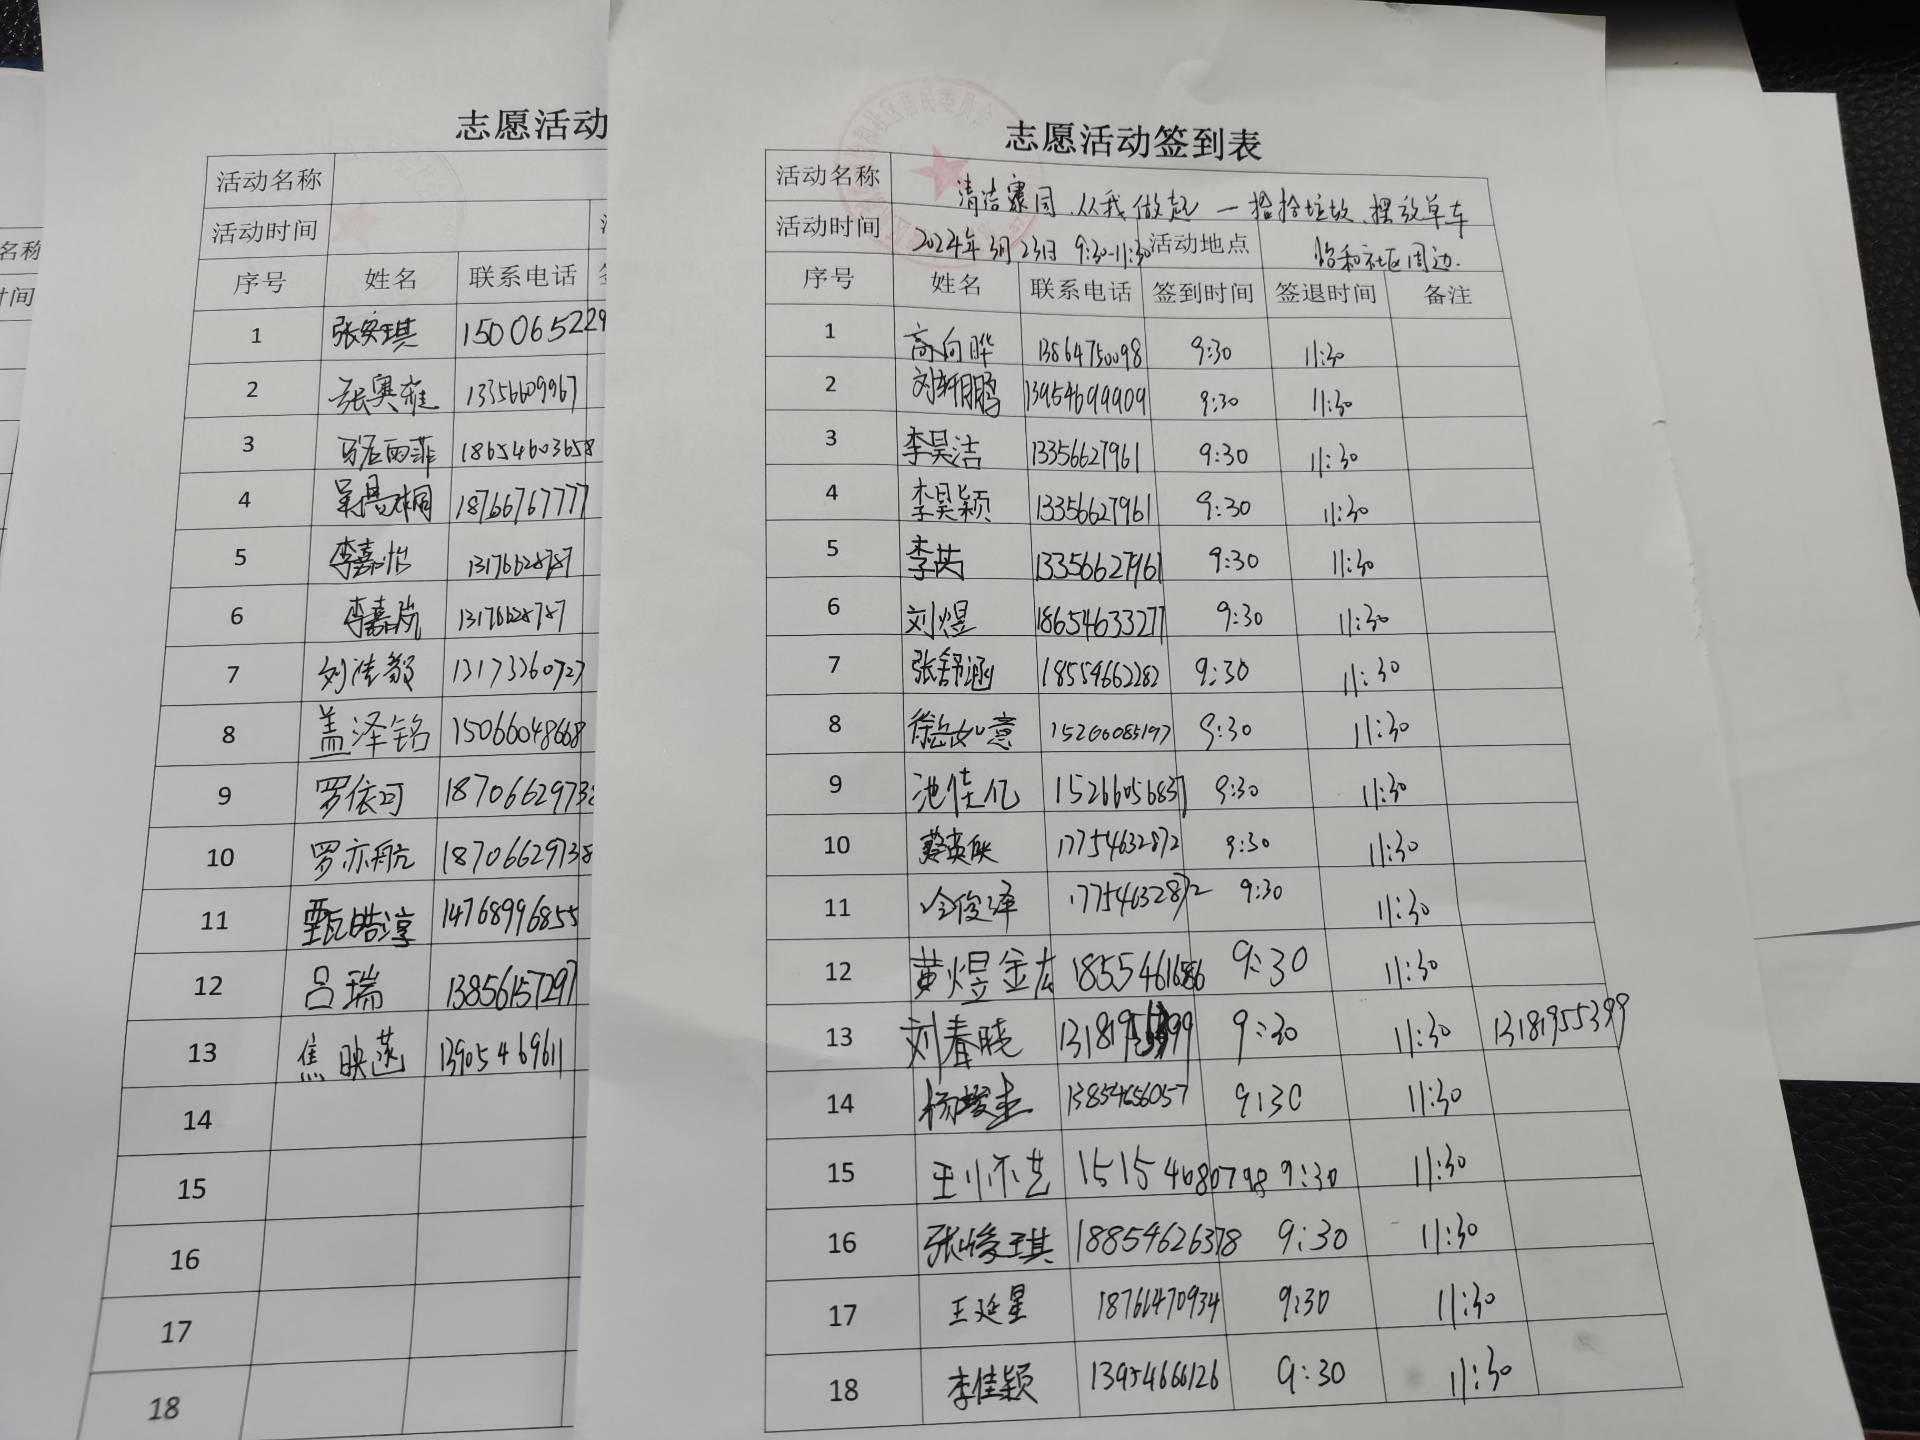 名称
时间
志愿活动
活动名称
活动时间
序号 姓名 联系电话
1 张安琪 150065229
2 张奥雅 13356609967
3 马石雨菲 18654603658
4 18766767777
5 李嘉怡 13176628787
6 李嘉航 13176628787
7 刘佳毅 13173260727
8 盖泽铭 15066048668
9 罗依可 1870662973
10 罗亦航 18706629738
11 甄皓淳 14768996855
12 吕瑞 13856157297
13 焦映菡 13905469611
14
15
16
17
18
志愿活动签到表
活动名称 清洁家园、从我做起 一 捡拾垃圾、摆放单车
活动时间 2024年3月23日 9:30-11:30 活动地点 昭和社区周边.
序号 姓名 联系电话 签到时间 签退时间 备注
1 高向晔 13864750098 9:30 11:30
2 刘轩鹏 13954699909 9:30 11:30
3 李昊洁 13356627961 9:30 11:30
4 李昊颖 13356627961 9:30 11:30
5 李芮 13356627961 9:30 11:30
6 刘煜 18654633277 9:30 11:30
7 张舒涵 18554662282 9:30 11:30
8 徐岳如意 15266085197 9:30 11:30
9 池佳亿 15266056837 9:30 11:30
10 17754632872 9:30 11:30
11 冷俊泽 17754632872 9:30 11:30
12 黄煜 9:30 11:30
13 刘春晓 9:30 11:30 13181955399
14 杨峻圭 13854656057 9:30 11:30
15 王小亦艺 15154680798 9:30 11:30
16 张峻琪 18854626378 9:30 11:30
17 王延星 18766470934 9:30 11:30
18 李佳颖 13954666126 9:30 11:30